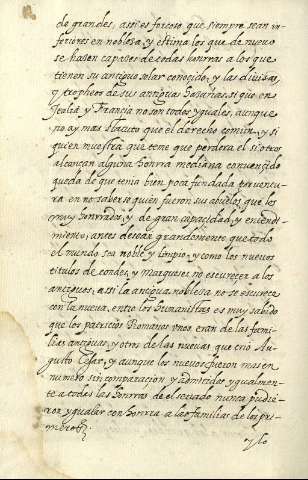 de grandes, assi es forcoso que siempre sean in-
feriores en nobleza, y estima los que de nuevo
se hazen capazes de todas honrras a los que
tienen su antiguo solar conoçido, y las divisas,
y tropheos de sus antiguas hazañas, si que en
Italia y Francia no son todos yguales, aunque
no ay mas statuto que el derecho comun, y si
quien muestra que teme que perdera el si otros
alcançan alguna honrra mediana convençido
queda de que tema bien poca fundada
en no saber quien fueron sus abuelos, que los
muy honrrados, y de gran capaçidad, y entendi-
miento, antes dessean grandemente que todo
el mundo sea noble y limpio, y como los nuevos
titulos de condes, y Marqueses no escureçen a los
antiguos, assi la antigua nobleza no se escureçe
con la nueva, entre los humanistas es muy sabido
que los patricios Romanos unos eran de las fami-
lias antiguas, y otros de las nuevas que crio Au-
gusto Cesar, y aunque los nuevos fueron mas en
numero sin comparaçion y admitidos ygualmen-
te a todas las honrras de el senado nunca pudie-
ron ygualar con honrra a las familias de los pri-
meros.
y lo